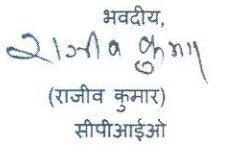 भवदीय,
राजीव कुमार
(राजीव कुमार)
सीपीआईओ